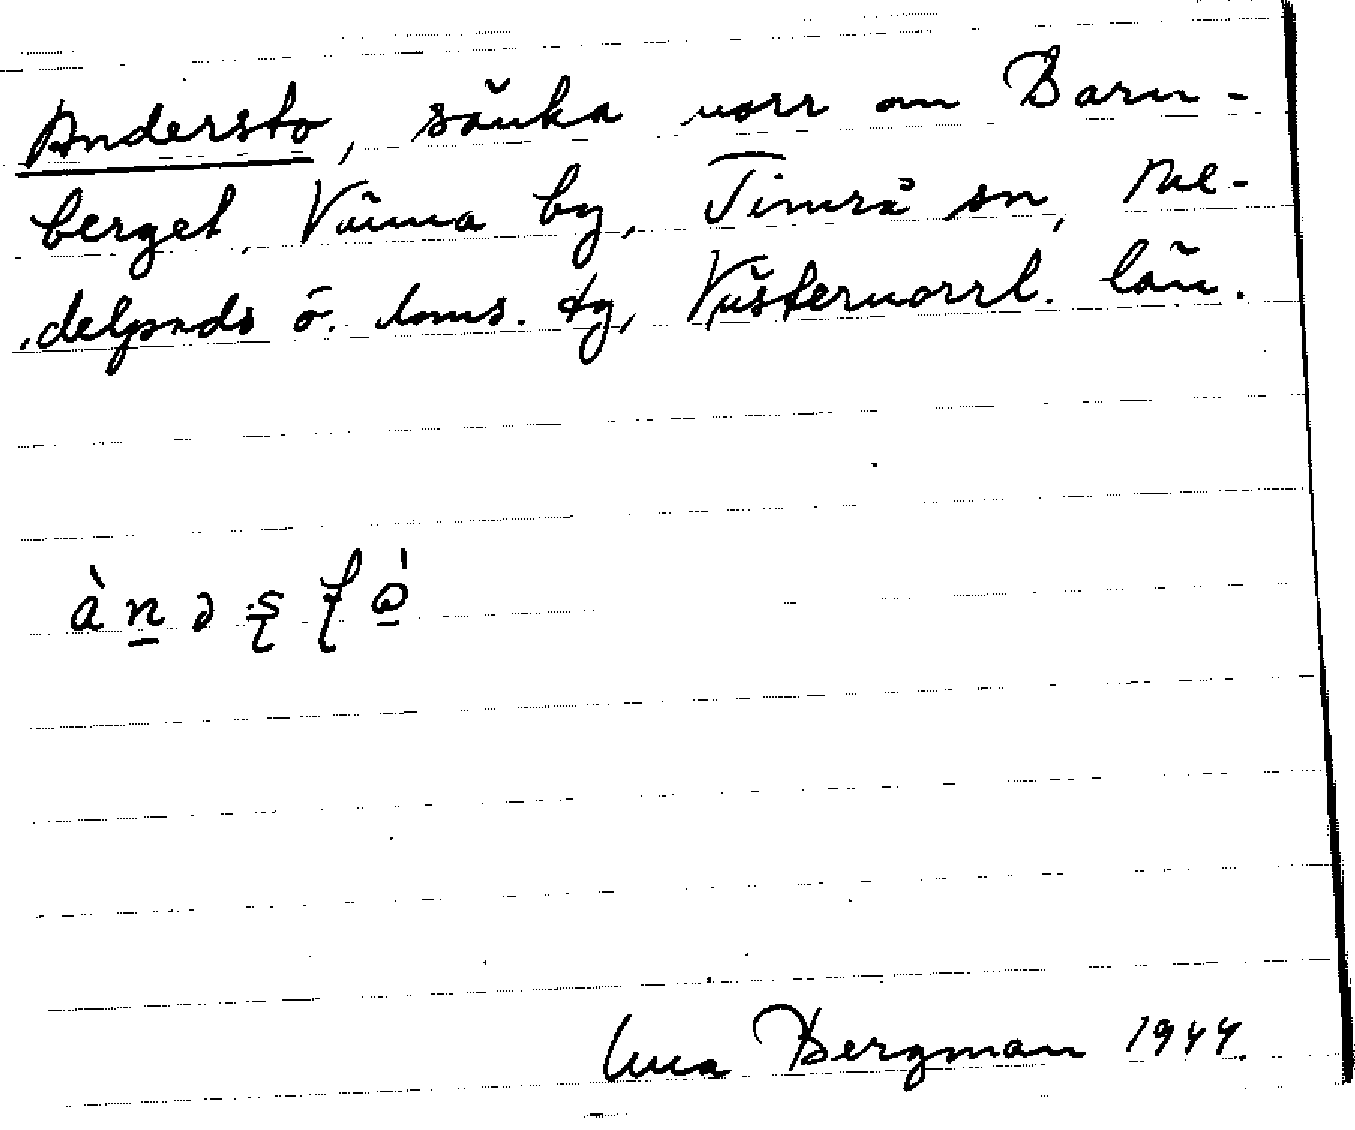 Andersto, sänka norr om Barn-
berget, Vänna by, Timrå sn, Me-
delpads ö. doms. tg, Västernorrl. län.
Bergman 1944.